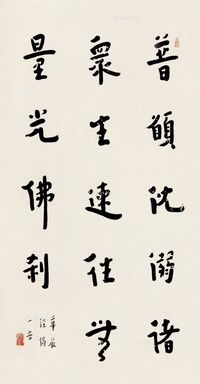 普願沈溺諸
衆生速往無
量光佛剎
華嚴
經偈
一音